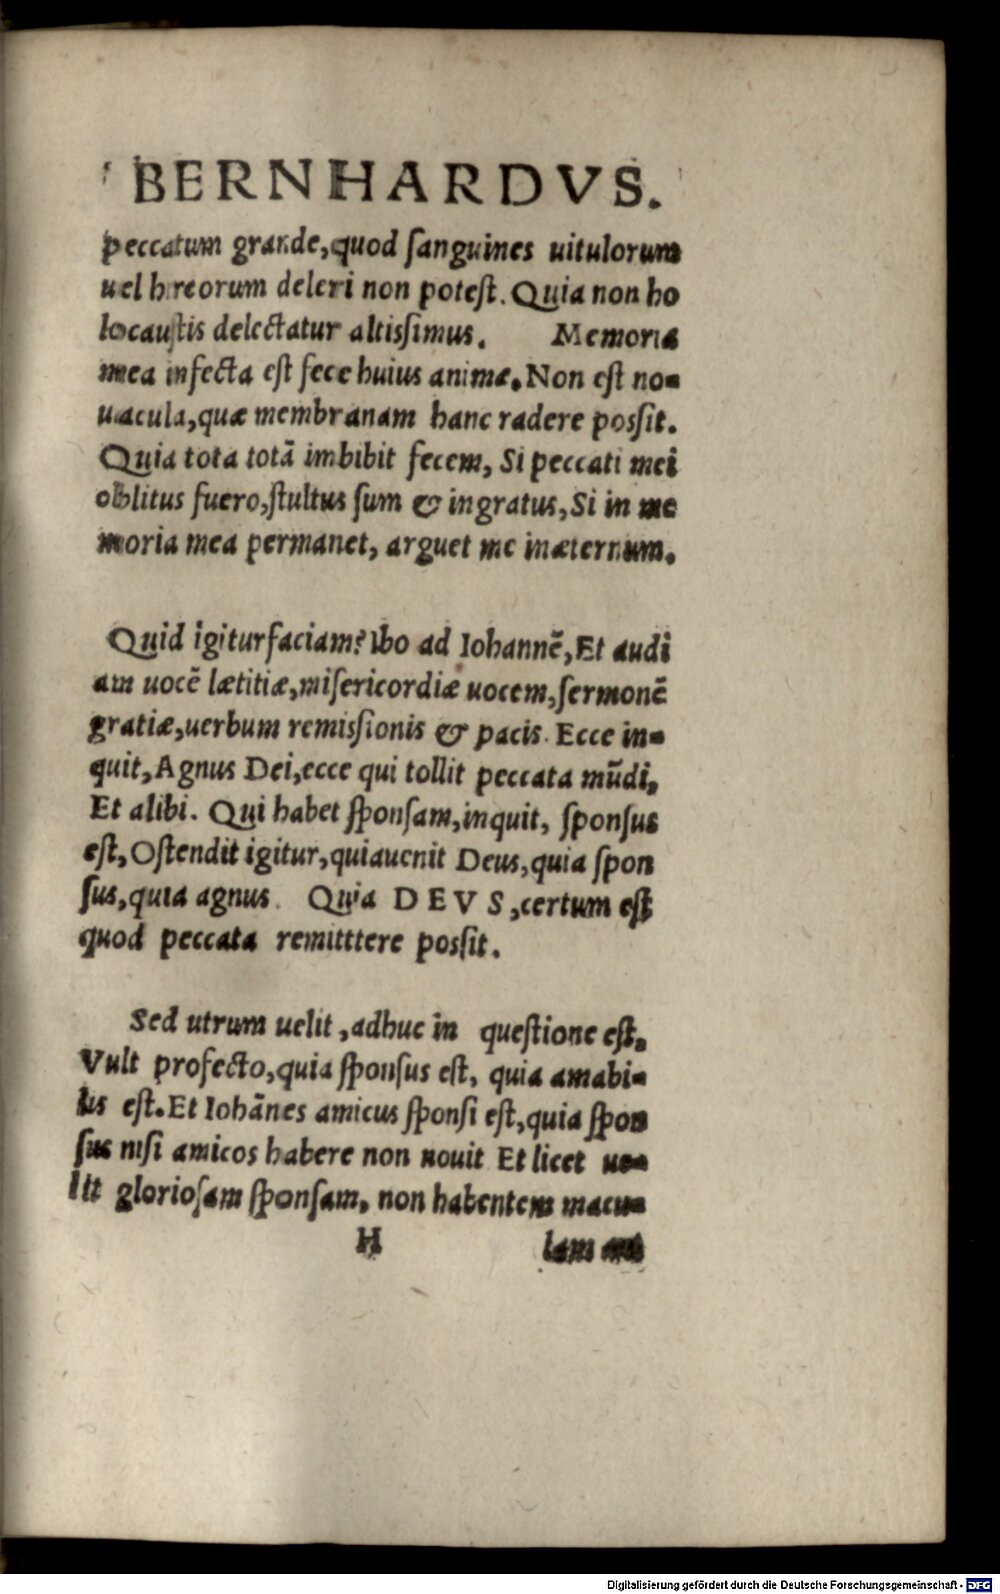 BERNHARDVS.
peccatum grande, quod ſanguines uitulorum
uel hircorum deleri non poteſt. Quia non ho
locauſtis delectatur altiſsimus. Memoria
mea infecta eſt fece huius animæ. Non eſt no-
uacula, quæ membranam hanc radere poſsit.
Quia tota totã imbibit fecem, Si peccati mei
oblitus fuero, ſtultus ſum & ingratus, Si in me
moria mea permanet, arguet me inæternum.
Quid igitur faciam? Ibo ad Iohannẽ, Et audi
am uocẽ lætitiæ, miſericordiæ uocem, ſermonẽ
gratiæ, uerbum remiſsionis & pacis. Ecce in-
quit, Agnus Dei, ecce qui tollit peccata mũdi,
Et alibi. Qui habet ſponſam, inquit, ſponſus
eſt, Oſtendit igitur, quia uenit Deus, quia ſpon
ſus, quia agnus. Quia DEVS, certum eſt
quod peccata remitttere poſsit.
Sed utrum uelit, adhuc in queſtione eſt.
Vult profecto, quia ſponſus eſt, quia amabi-
lis eſt. Et Iohãnes amicus ſponſi eſt, quia ſpon
ſus niſi amicos habere non nouit Et licet ue-
lit glorioſam ſponſam, non habentem macu-
H lam aut
Digitalisierung gefördert durch die Deutsche Forschungsgemeinschaft - DFG